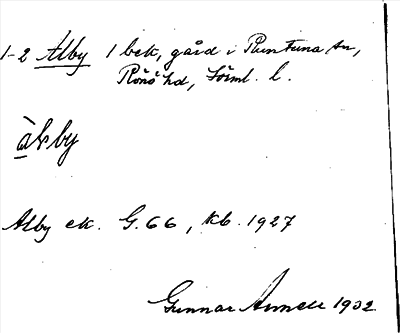 1-2 Alby 1 bek, gård i Runtuna sn,
Rönö hd, Söml. l.
àlby
Alby ek. G. 66, kb. 1927
Gunnar 1932